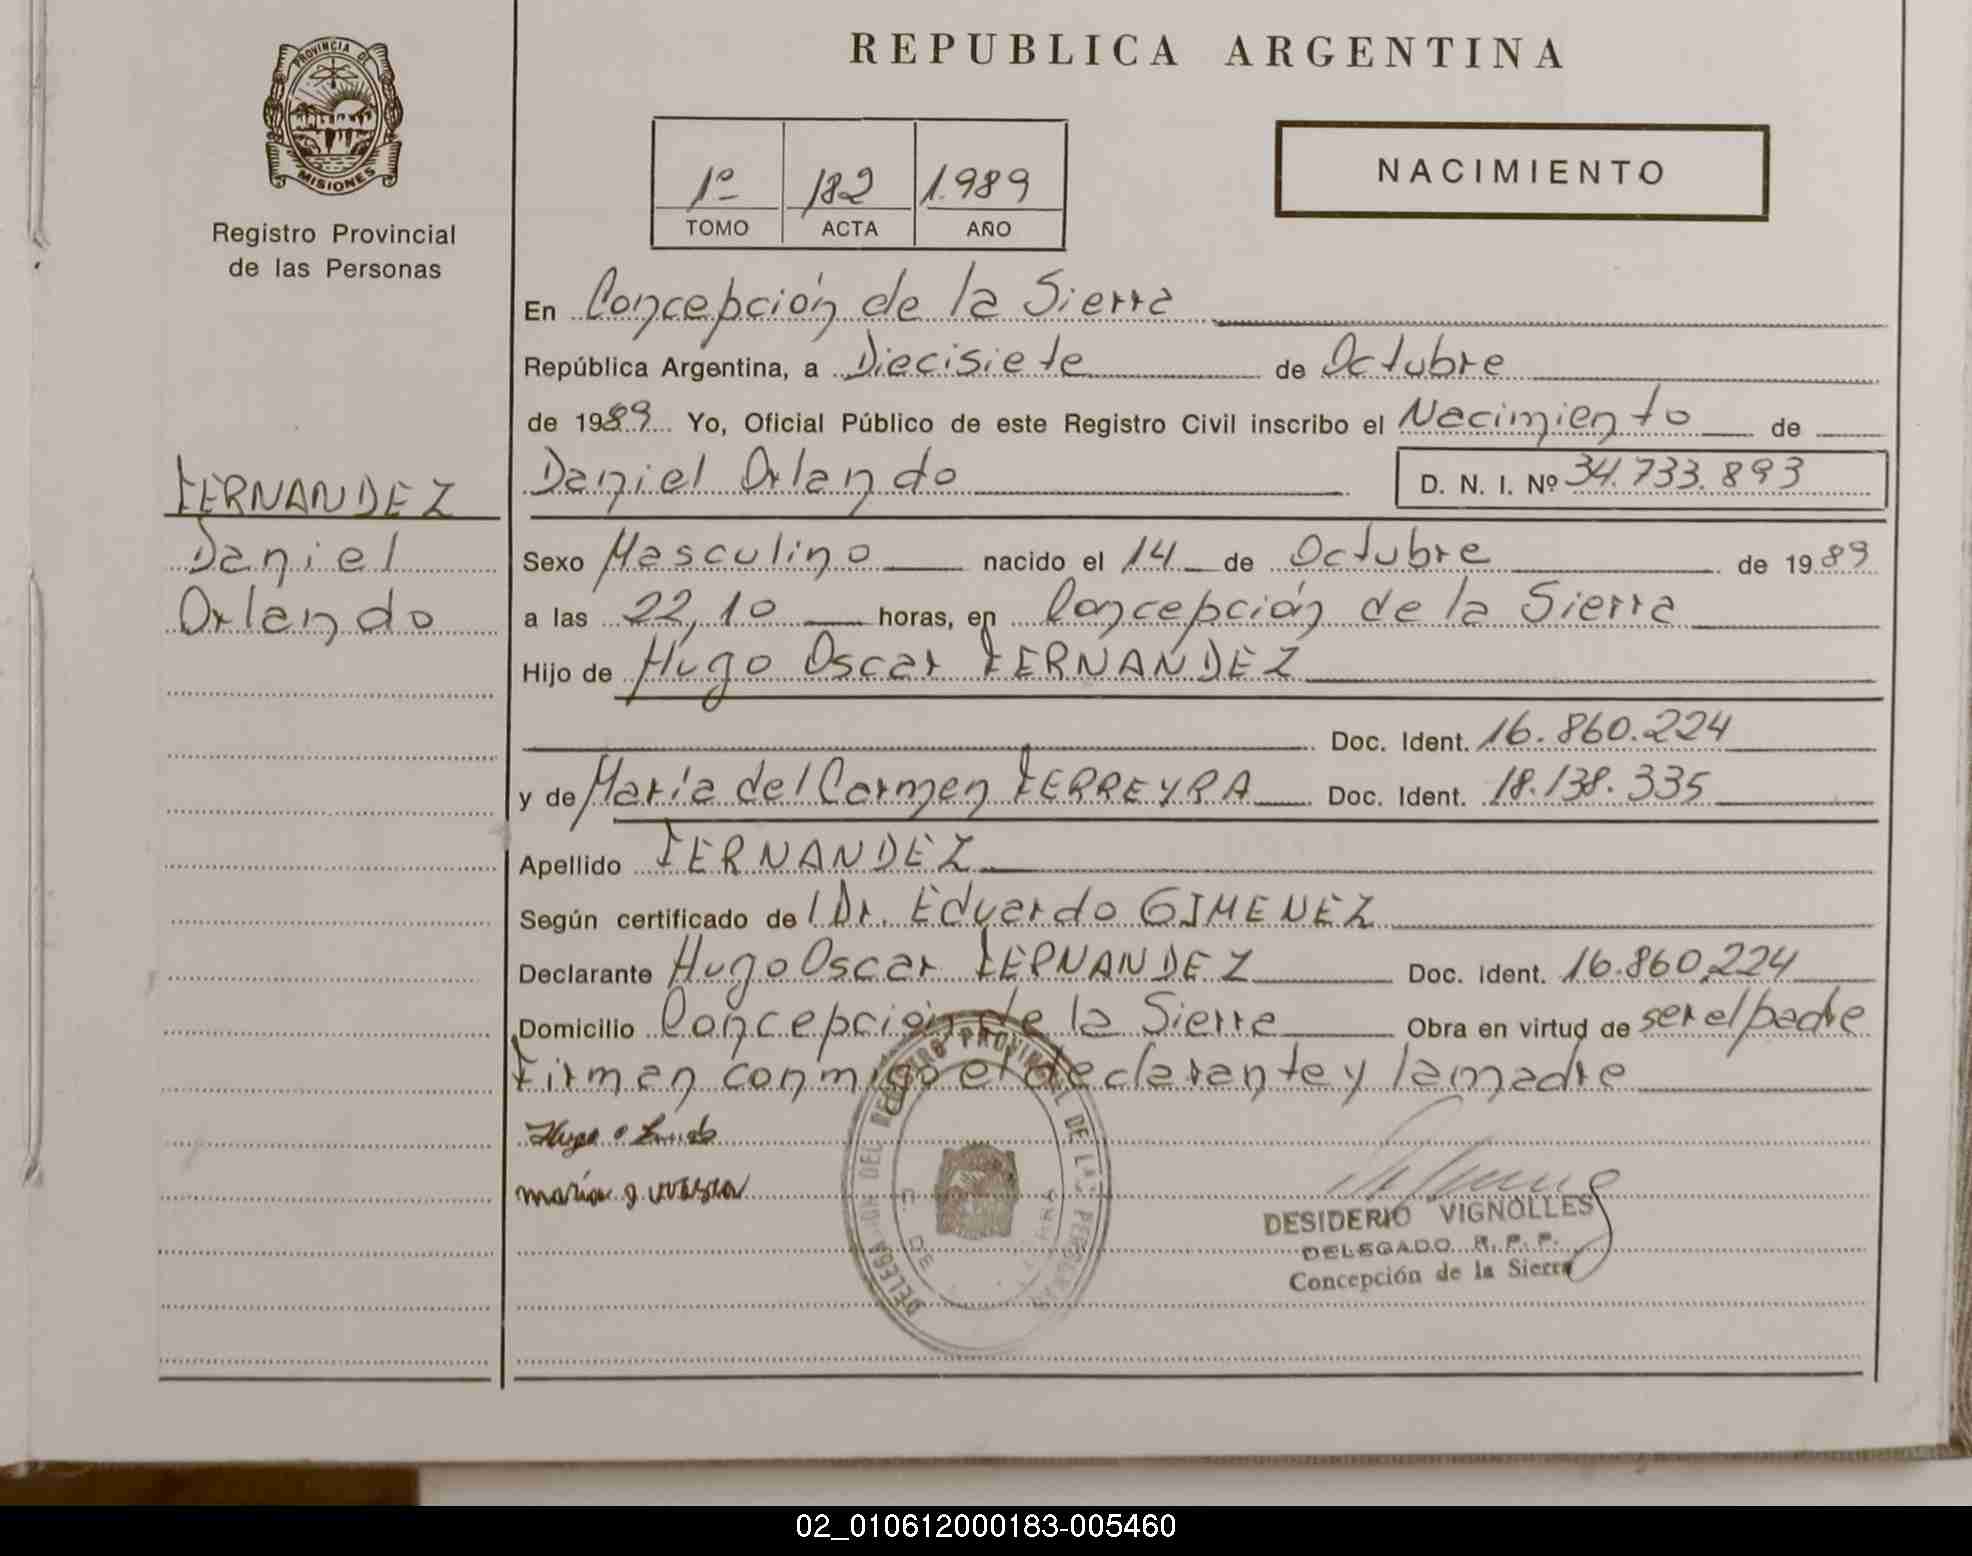 REPUBLICA ARGENTINA
PROVINCIA DE
MISIONES
Registro Provincial
de las Personas
1º 182 1.989
TOMO ACTA AÑO
NACIMIENTO
En Concepción de la Sierra
República Argentina, a Diecisiete de Octubre
de 1989 Yo, Oficial Público de este Registro Civil inscribo el Nacimiento de
Daniel Orlando D. N. I. Nº 34.733.893
FERNANDEZ
Daniel
Orlando
Sexo Masculino nacido el 14 de Octubre de 1989
a las 22,10 horas, en Concepción de la Sierra
Hijo de Hugo Oscar FERNANDEZ
Doc. Ident. 16.860.224
y de María del Carmen FERREYRA Doc. Ident. 18.138.335
Apellido FERNANDEZ
Según certificado de l Dr. Eduardo GIMENEZ
Declarante Hugo Oscar FERNANDEZ Doc. Ident. 16.860.224
Domicilio Concepción de la Sierra Obra en virtud de ser el padre
Firman conmigo el declarante y la madre
Hugo
maria
DELEGACION DEL REGISTRO PROVINCIAL DE LAS PERSONAS
C. DE
DESIDERIO VIGNOLLES
DELEGADO R. P. P.
Concepción de la Sierra
02_010612000183-005460